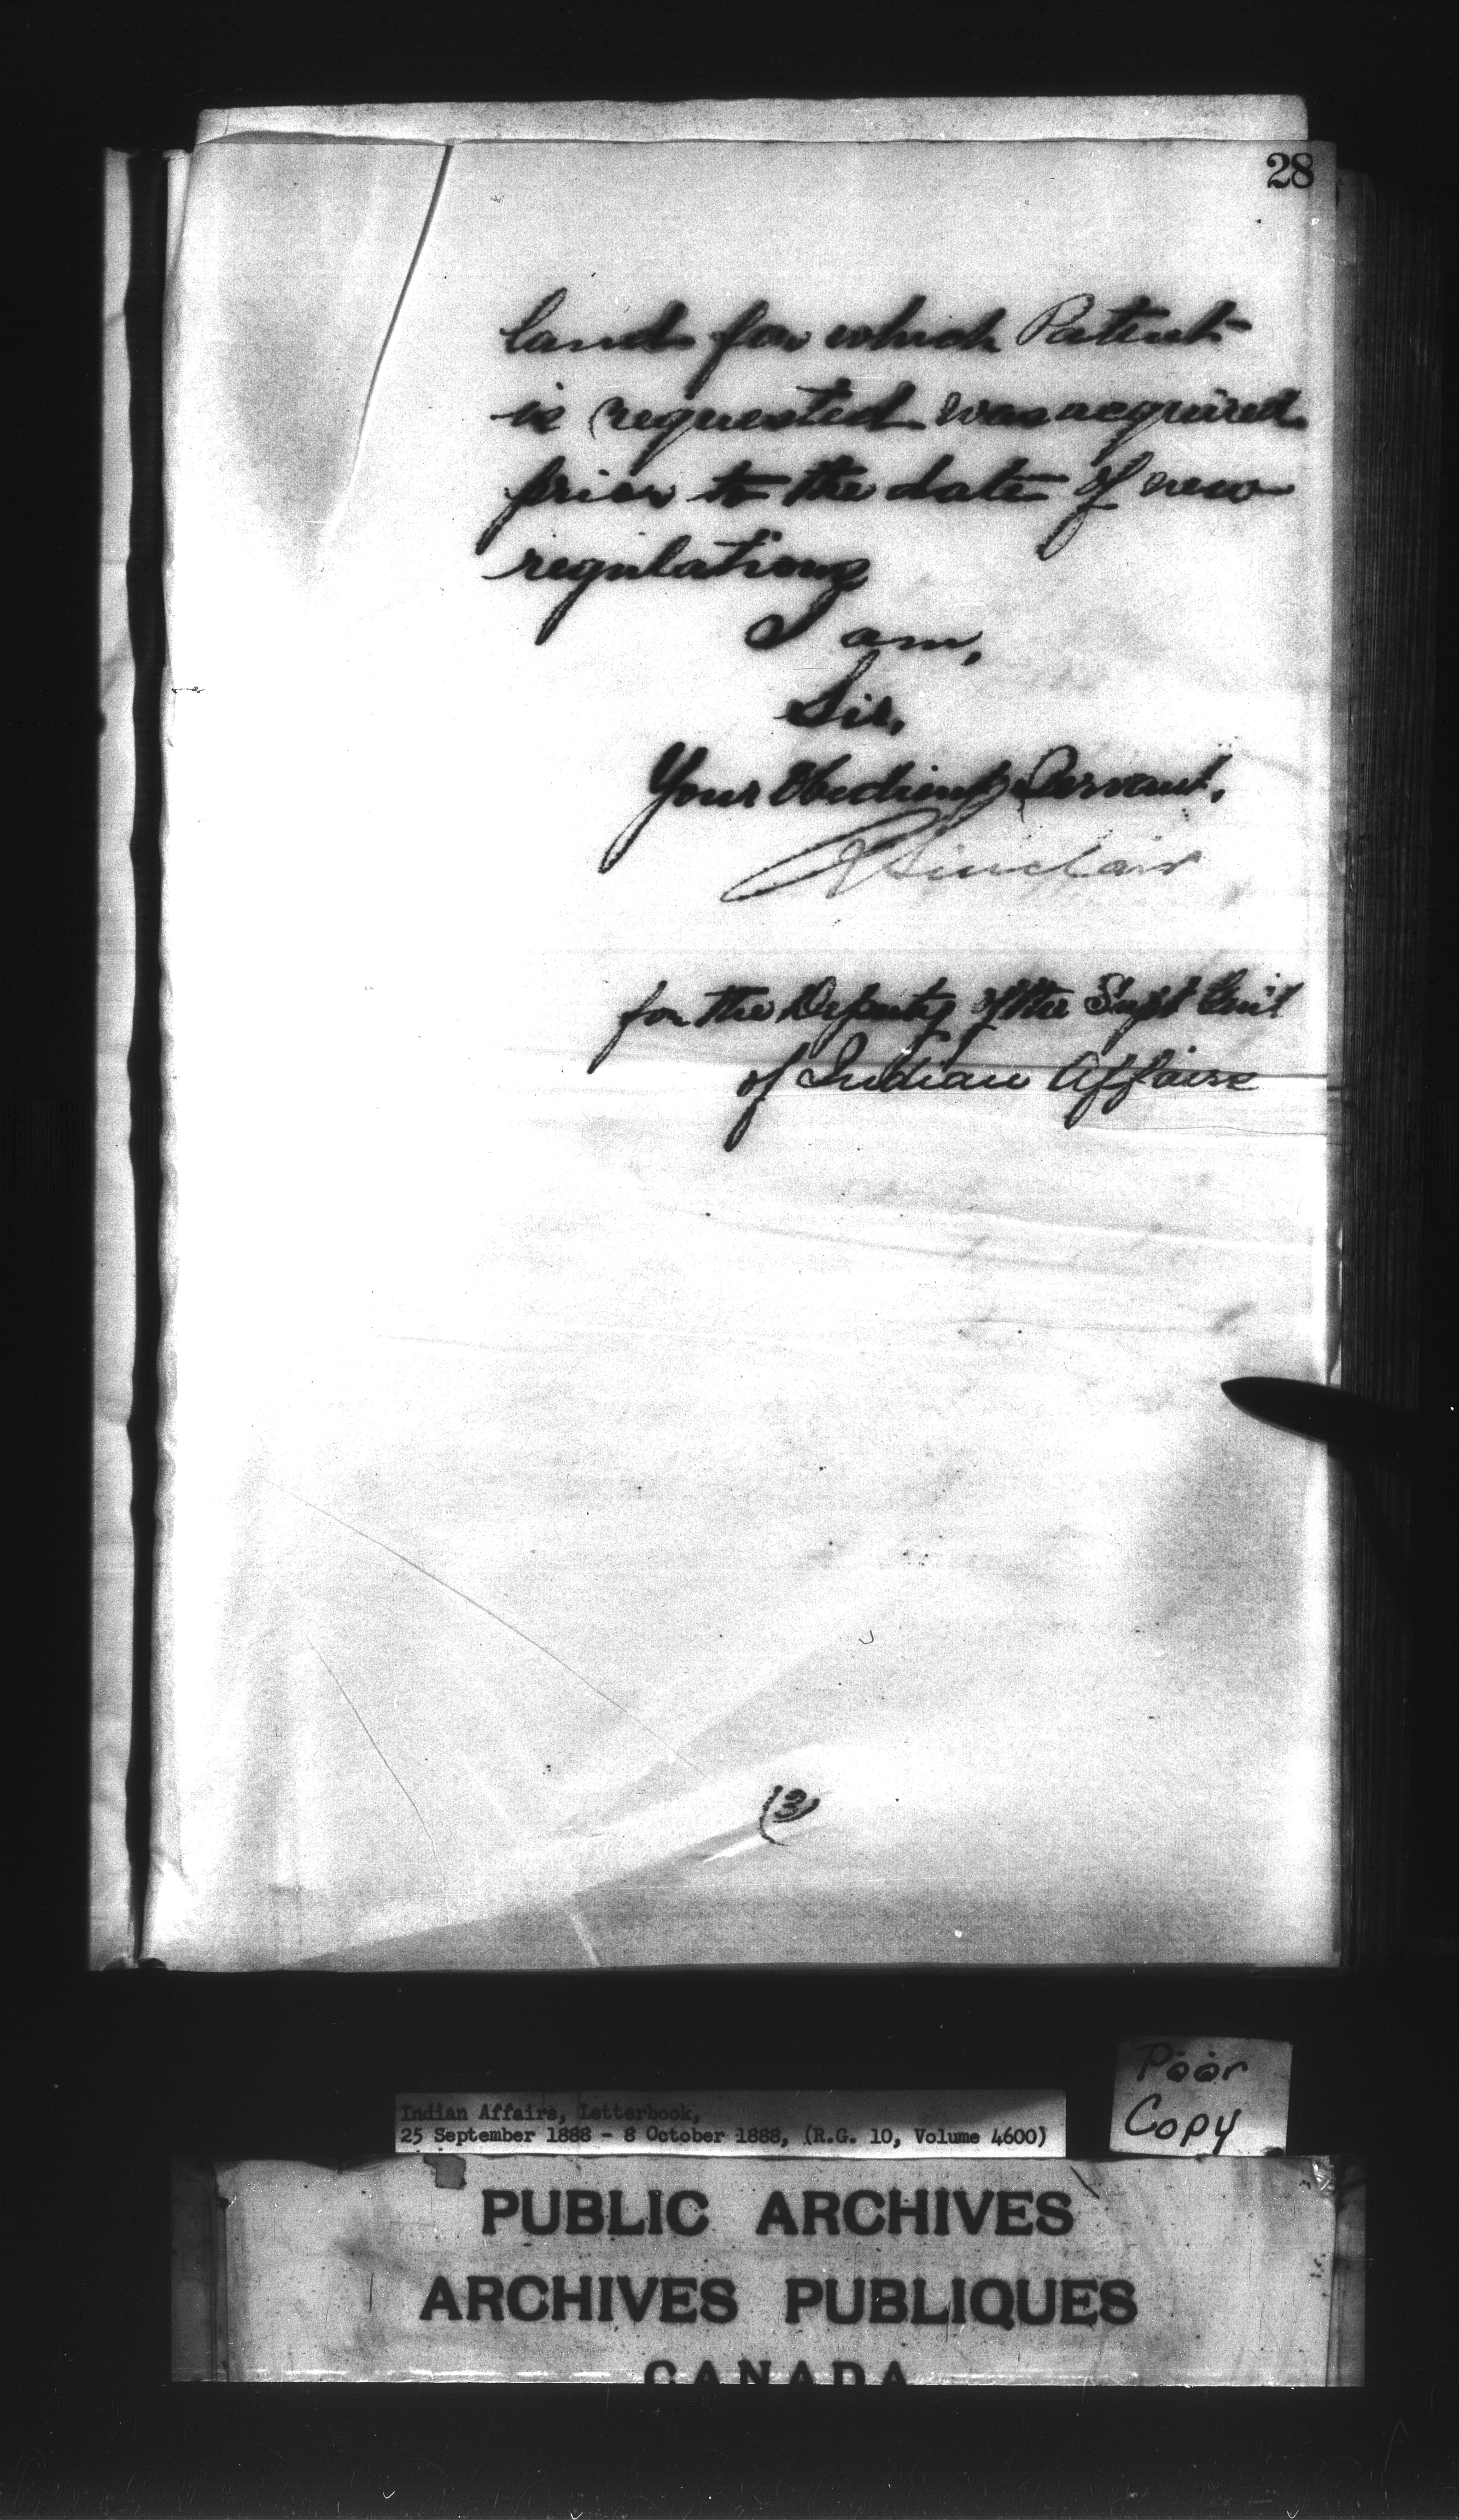 28
lands for which Patent
is requested was acquired
prior to the date of new
regulations
I am,
Sir,
Your Obedient Servant,
R Sinclair
for the Deputy of the Supt Gen'l
of Indian Affairs
(3)
Poor
Copy
Indian Affairs, Letterbook,
25 September 1888 - 8 October 1888, (R.G. 10, Volume 4600)
PUBLIC ARCHIVES
ARCHIVES PUBLIQUES
CANADA